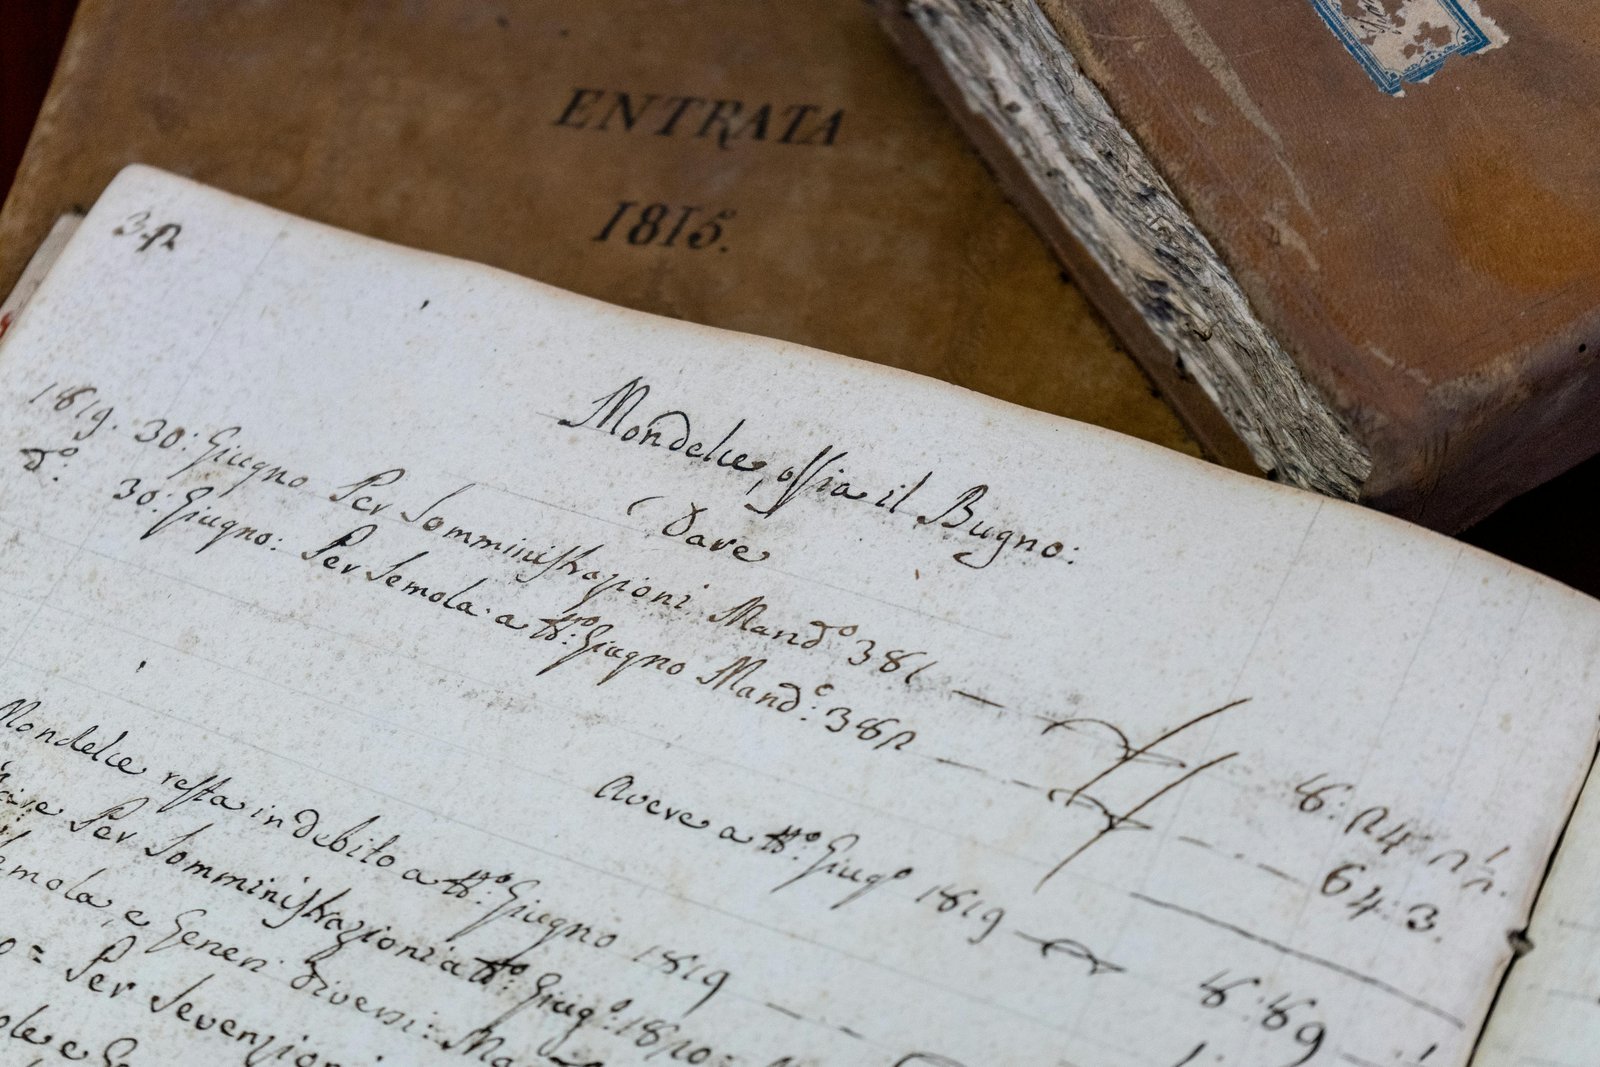 ENTRATA
1815.
Mondelce, ossia il Bugno:
Dare
1819. 30: Giugno Per Somministrazioni Mand.º 381
d.º 30: Giugno: Per Semola a tt.º Giugno Mand.º: 382
8: 24
64: 3.
Avere a tt.º: Giug.º 1819
8: 89
Mondelce resta in debito a tt.º: Giugno 1819
Per Somministrazioni a tt.º Giug.º: 1820:
e Generi diversi:
= Per Sevenzioni
e